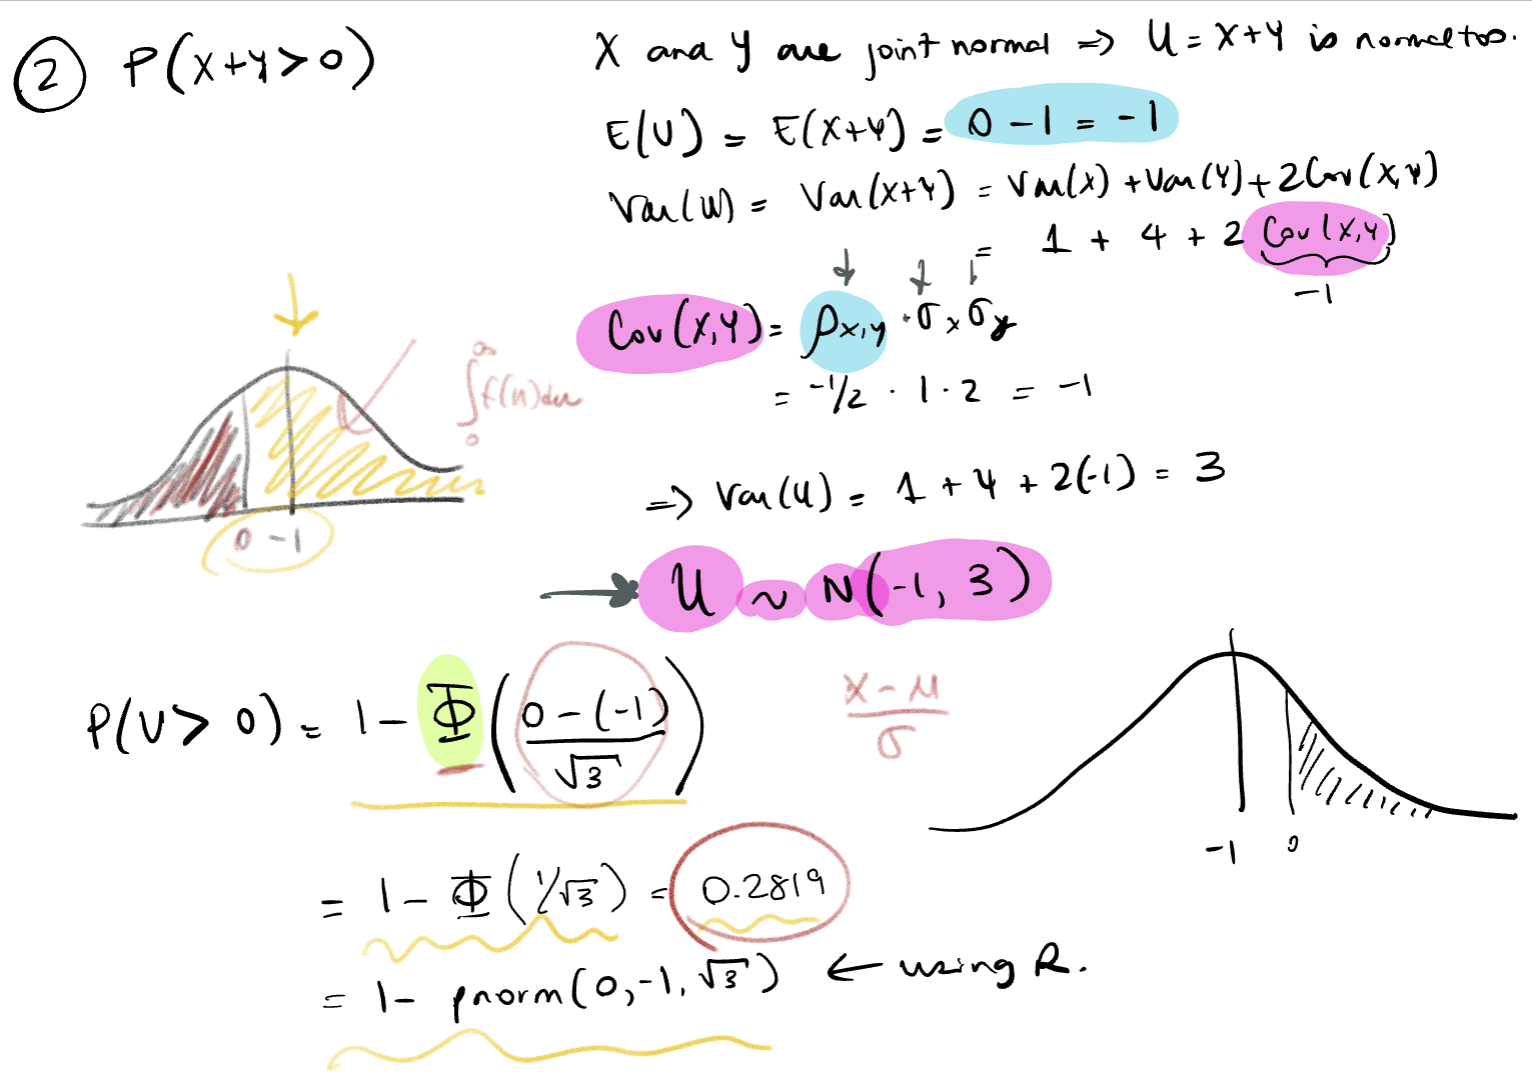 ② P(X+Y>0)
X and Y are joint normal => U = X+Y is normal too.
E(U) = E(X+Y) = 0 - 1 = -1
Var(U) = Var(X+Y) = Var(X) + Var(Y) + 2Cov(X,Y)
= 1 + 4 + 2 Cov(X,Y)
-1
Cov(X,Y) = ρx,y · σx σy
= -1/2 · 1 · 2 = -1
∫₀^∞ f(u)du
0 -1
=> Var(U) = 1 + 4 + 2(-1) = 3
U ~ N(-1, 3)
P(U > 0) = 1 - Φ((0-(-1))/√3)
(X-μ)/σ
-1 0
= 1 - Φ(1/√3) = 0.2819
= 1- pnorm(0,-1,√3) ← using R.